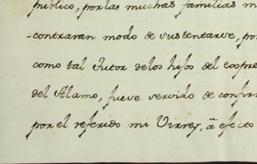 publico, por las muchas familias
contraran modo de sustentarse, po
como tal Tutor delos hijos del
del Alamo, fueve servido de
por el referido mi Virrey, á efecto